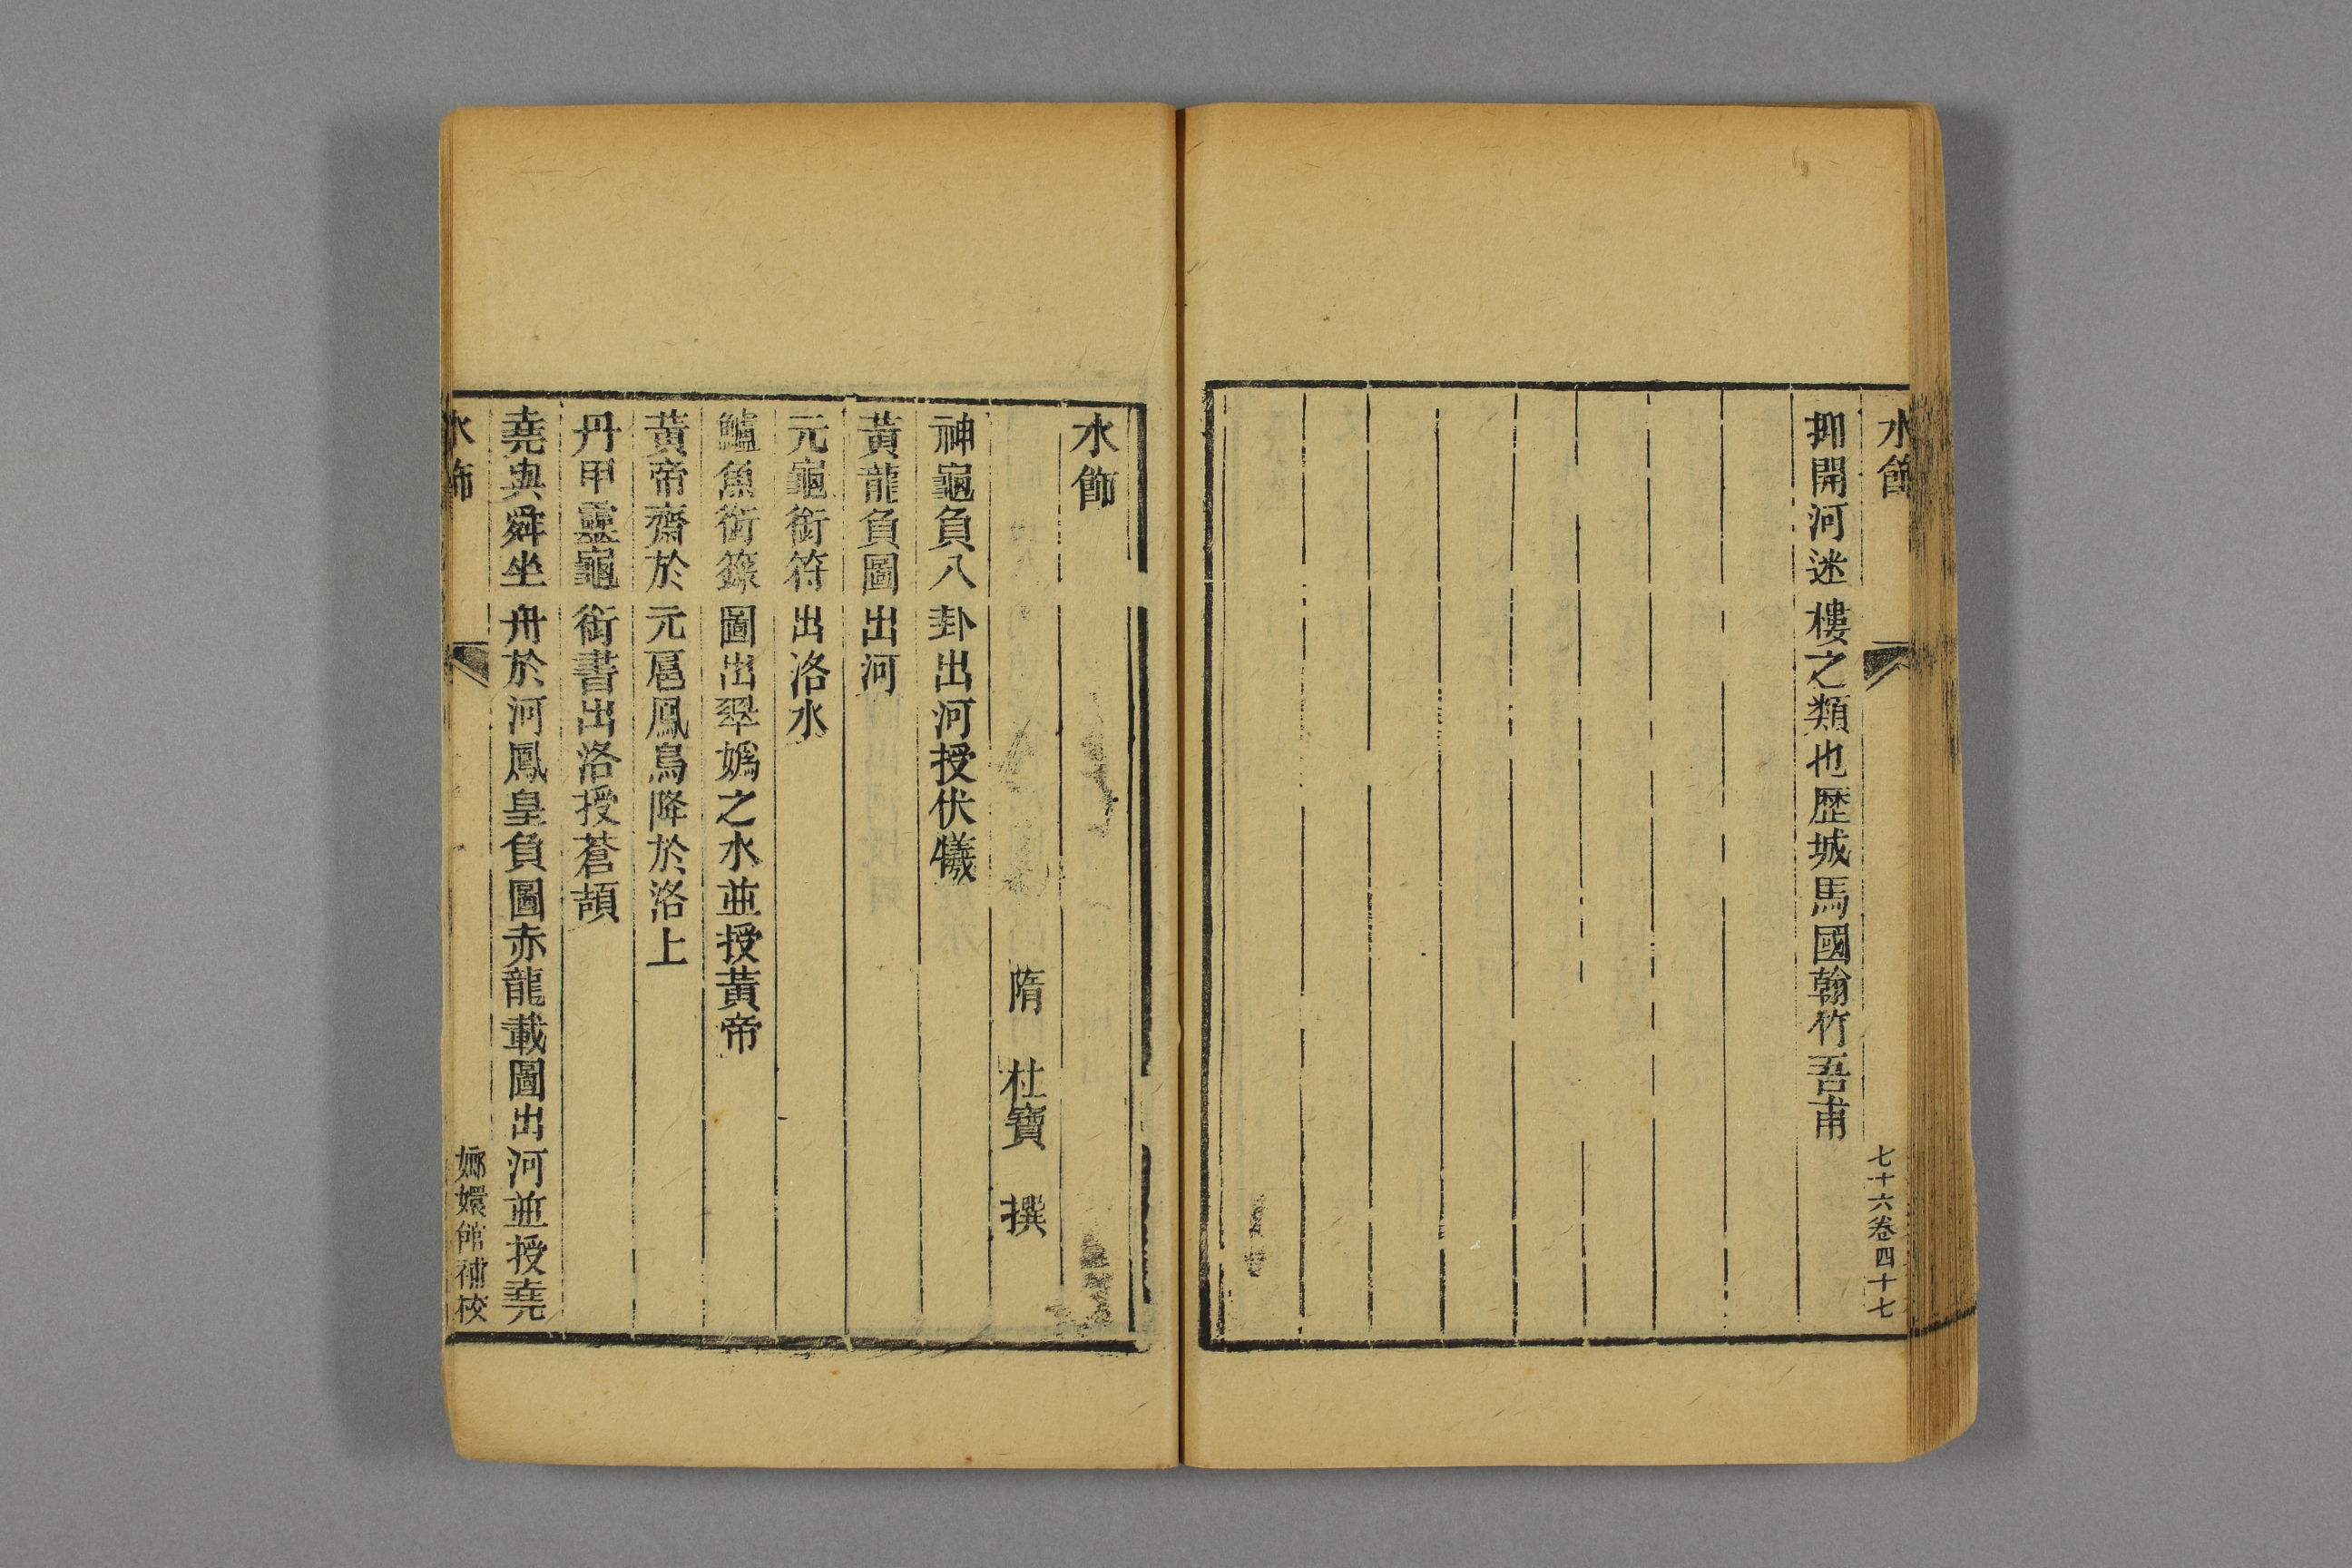 水飾
七十六卷四十七
抑開河迷樓之類也歴城馬國翰竹吾甫
水飾
隋 杜寶 撰
神龜負八卦出河授伏犧
黃龍負圖出河
元龜銜符出洛水
鱸魚銜籙圖出翠媯之水並授黃帝
黃帝齋於元扈鳳鳥降於洛上
丹甲靈龜銜書出洛授蒼頡
堯與舜坐舟於河鳳皇負圖赤龍載圖出河並授堯
水飾
嫏嬛館補校